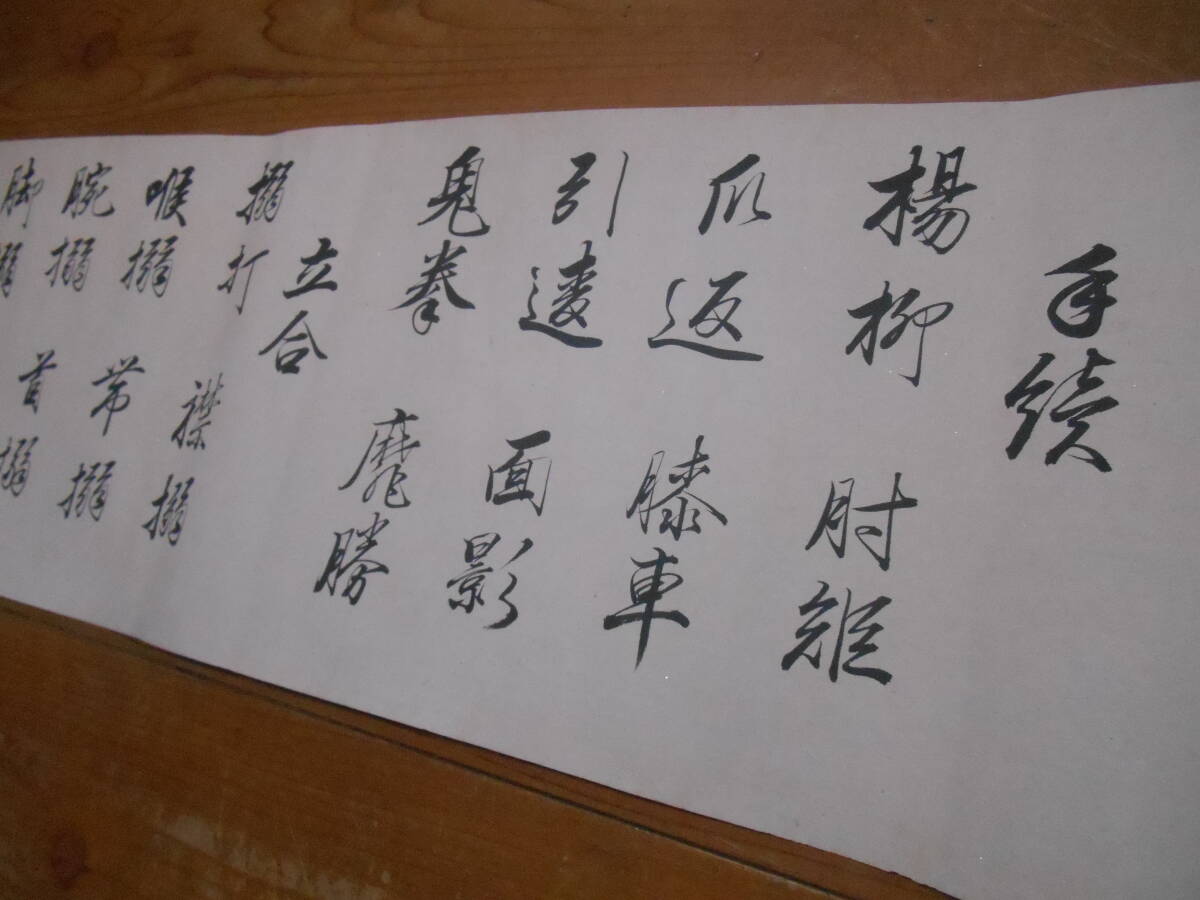 手續
楊柳 肘
爪返 膝車
引 面影
鬼拳 勝
立合
搦打 襟搦
喉搦 帯搦
腕搦 首搦
脚搦